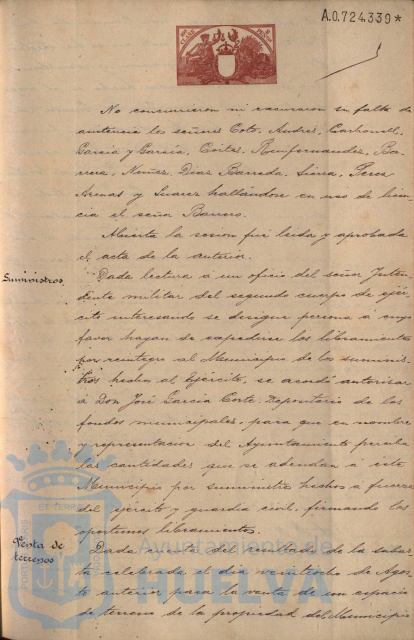 A.0.724.339*
No concurrieron ni excusaron su falta de
asistencia los señores Coto, Andrés, Carbonell,
García y García, Cortés, Renfernandez, Ba-
rrera, Nuñez, Diaz Barreda, Sierra, Perez
Arenas y Suarez hallándose en uso de licen-
cia el señor Barroso.
Abierta la sesion fué leida y aprobada
el acta de la anterior.
Suministros.
Dada lectura á un oficio del señor Inten-
dente militar del segundo cuerpo de ejér-
cito interesando se designe persona á cuyo
favor hayan de expedirse los libramientos
por reintegro al Municipio de los suminis-
tros hechos al Ejército, se acordó autorizar
á Don José García Corte, Depositario de los
fondos municipales, para que en nombre
y representacion del Ayuntamiento perciba
las cantidades que se adeudan á este
Municipio por suministros hechos á fuerzas
del ejército y guardia civil, firmando los
oportunos libramientos.
Venta de
terrenos
Dada cuenta del resultado de la subas-
ta celebrada el dia veintiocho de Agos-
to anterior para la venta de un espacio
de terreno de la propiedad del Municipio
Ayuntamiento de
HUELVA